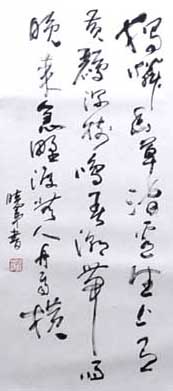 獨憐幽草澗邊生上有
黃鸝深樹鳴春潮帶雨
晚來急野渡無人舟自橫
書